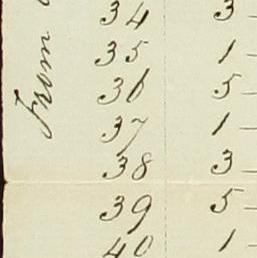 From
34 3
35 1
36 5
37 1
38 3
39 5
40 1